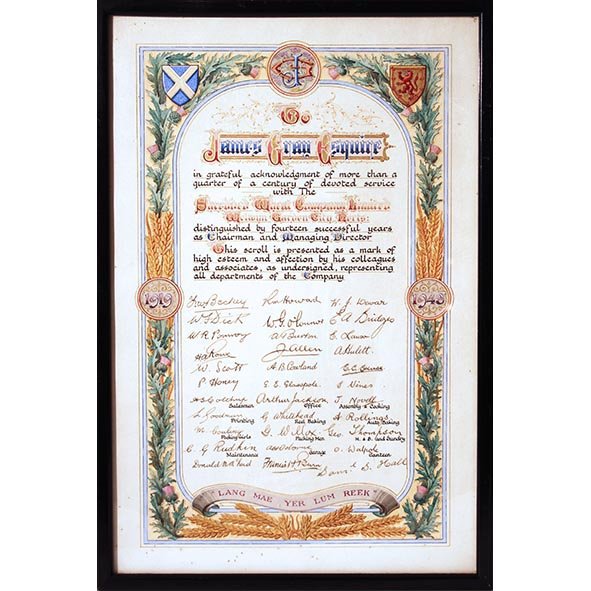 To
James Gray Esquire
in grateful acknowledgment of more than a
quarter of a century of devoted service
with The
Shredded Wheat Company Limited
Welwyn Garden City Herts:
distinguished by fourteen successful years
as Chairman and Managing Director
This scroll is presented as a mark of
high esteem and affection by his colleagues
and associates, as undersigned, representing
all departments of the Company
1919
1945
Howard W. J. Dewar
W S Dick W. G. O'Connor E A Bridges
W R Pomroy A S Burton E. Lawson
J Allen A Hulett.
W. Scott A B Cowland
P Honey S. E. Glasspole. J Vines
Arthur Jackson J Newell
Salesmen Office Assembly & Cooking
L Goodman G Whitehead A Rollings
Printing Reel Baking Auto Baking
M. Cowling G. Wilcox Geo. Thompson
Packing Girls Packing Men M. & B. and Sundry
C G Rudkin O. Walpole
Maintenance Garage Canteen
Donald Francis
Sam'l S. Hall
"LANG MAE YER LUM REEK"